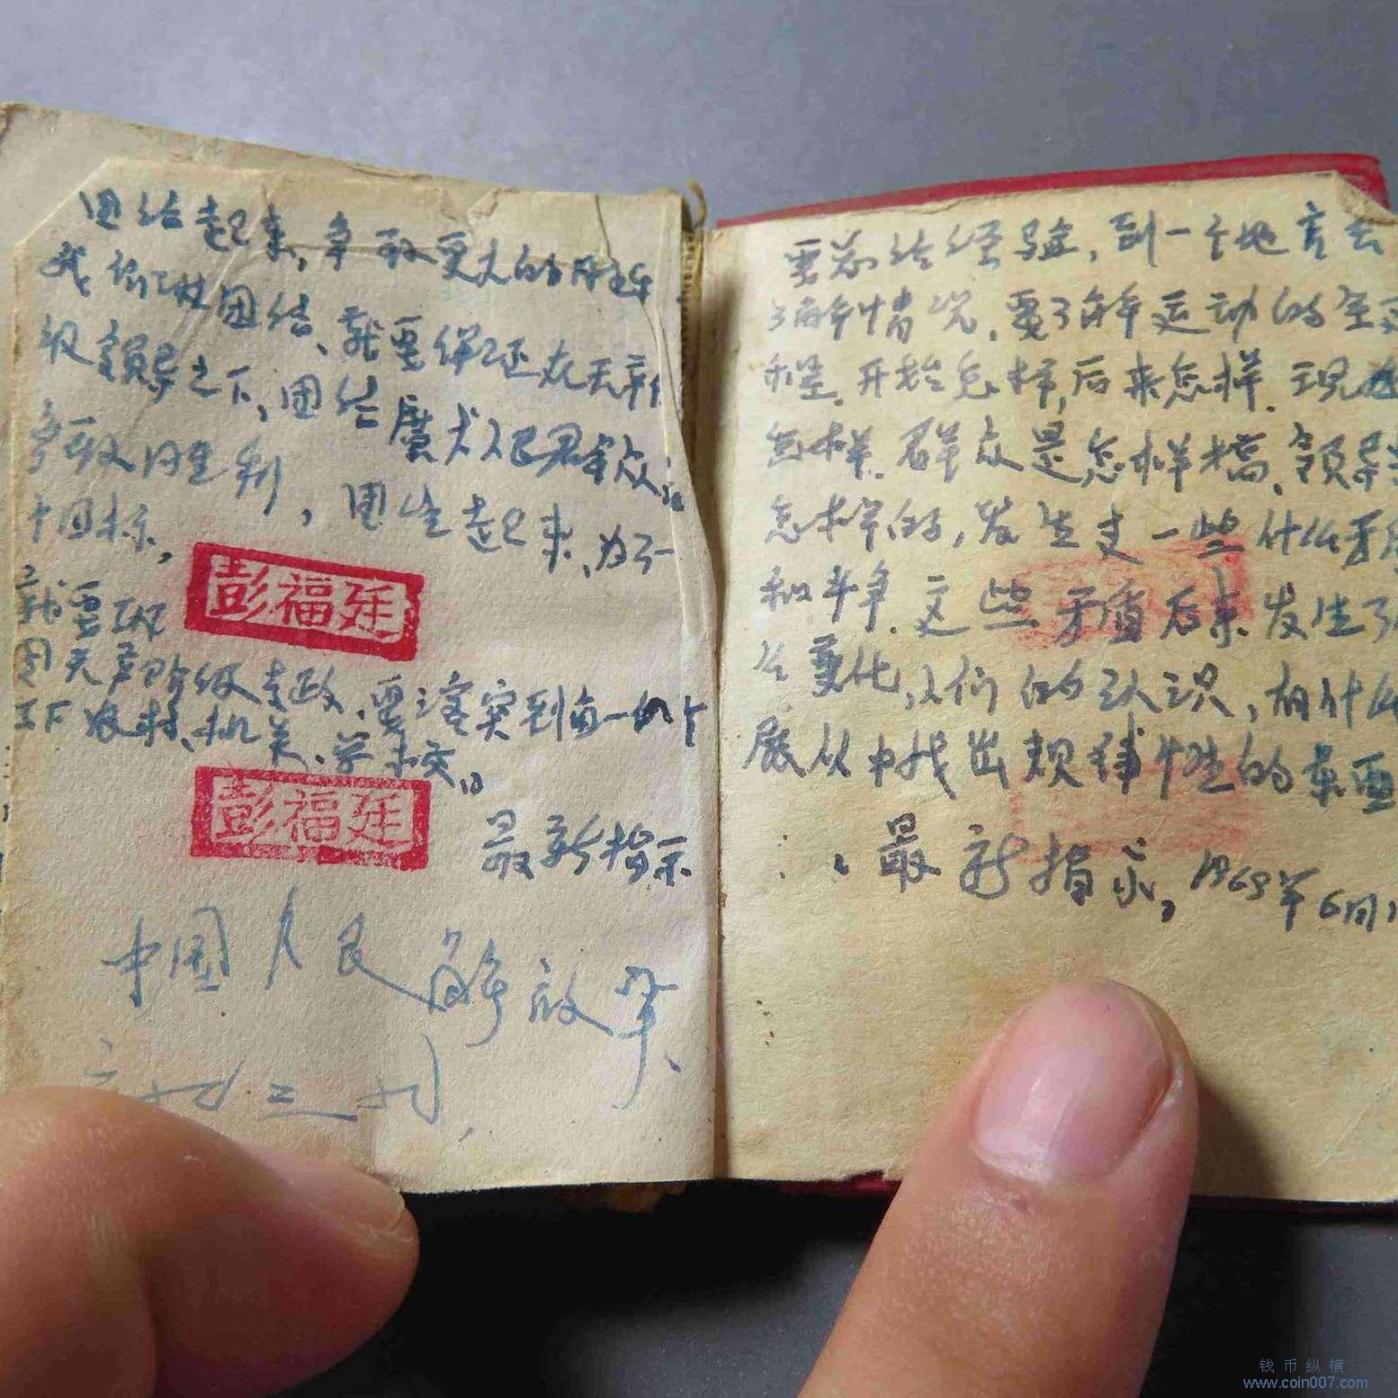 团结起来，争取更大的胜利
我们说团结、就要保证在无产阶
级领导之下，团结广大人民群众
争取胜利，团结起来、为了一
个目标，
彭福廷
就要巩
固无产阶级专政、要落实到每一个
工厂农村、机关、学校。
彭福廷
最新指示
中国人民解放军、
要总结经验，到一个地方去
了解情况，要了解运动的全
程．开始怎样，后来怎样．现
怎样．群众是怎样搞．领导
怎样的，发生过一些什么矛
和斗争．这些矛盾后来发生了
么变化，人们的认识，有什么
展从中找出规律性的东西
最新指示，1969年6月
钱币纵横
www.coin007.com